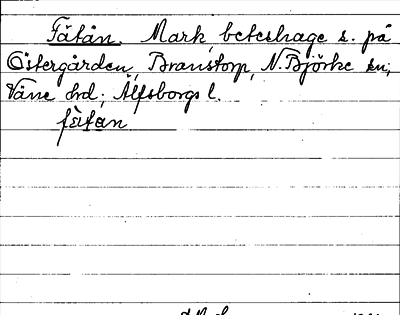 Fätån. Mark, beteshage s. på
Östergården, Branstorp, N. Björke sn;
Väne hd; Älfsborgs l.
fèt̀an